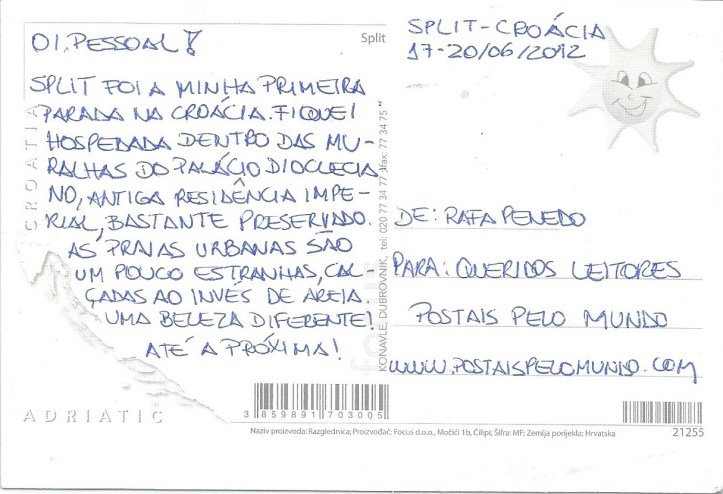 OI, PESSOAL!
SPLIT FOI A MINHA PRIMEIRA
PARADA NA CROÁCIA. FIQUEI
HOSPEDADA DENTRO DAS MU-
RALHAS DO PALÁCIO DIOCLECIA
NO, ANTIGA RESIDÊNCIA IMPE-
RIAL, BASTANTE PRESERVADO.
AS PRAIAS URBANAS SÃO
UM POUCO ESTRANHAS, CAL-
ÇADAS AO INVÉS DE AREIA.
UMA BELEZA DIFERENTE!
ATÉ A PRÓXIMA!
Split
SPLIT-CROÁCIA
17-20/06/2012
DE: RAFA PENEDO
PARA: QUERIDOS LEITORES
POSTAIS PELO MUNDO
WWW.POSTAISPELOMUNDO.COM
CROATIA
ADRIATIC
KONAVLE, DUBROVNIK, tel: 020 77 34 77, fax: 77 34 75
3 859891 703005
Naziv proizvoda: Razglednica; Proizvođač: Focus d.o.o., Močići 1b, Čilipi; Šifra: MF; Zemlja porijekla: Hrvatska
21255